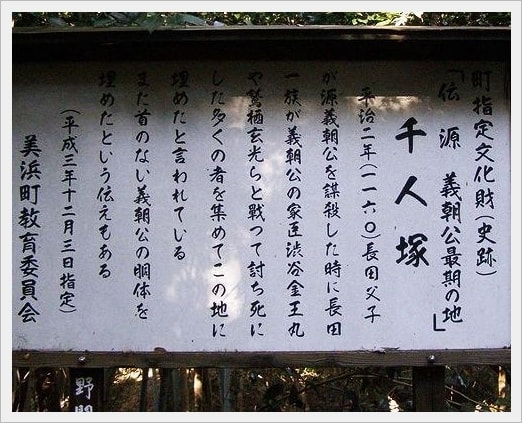 町指定文化財(史跡)
「伝 源 義朝公最期の地」
千人塚
平治二年(一一六〇)長田父子
が源義朝公を謀殺した時に長田
一族が義朝公の家臣渋谷金王丸
や鷲栖玄光らと戦つて討ち死に
した多くの者を集めてこの地に
埋めたと言われている
また首のない義朝公の胴体を
埋めたという伝えもある
(平成三年十二月三日指定)
美浜町教育委員会
野間